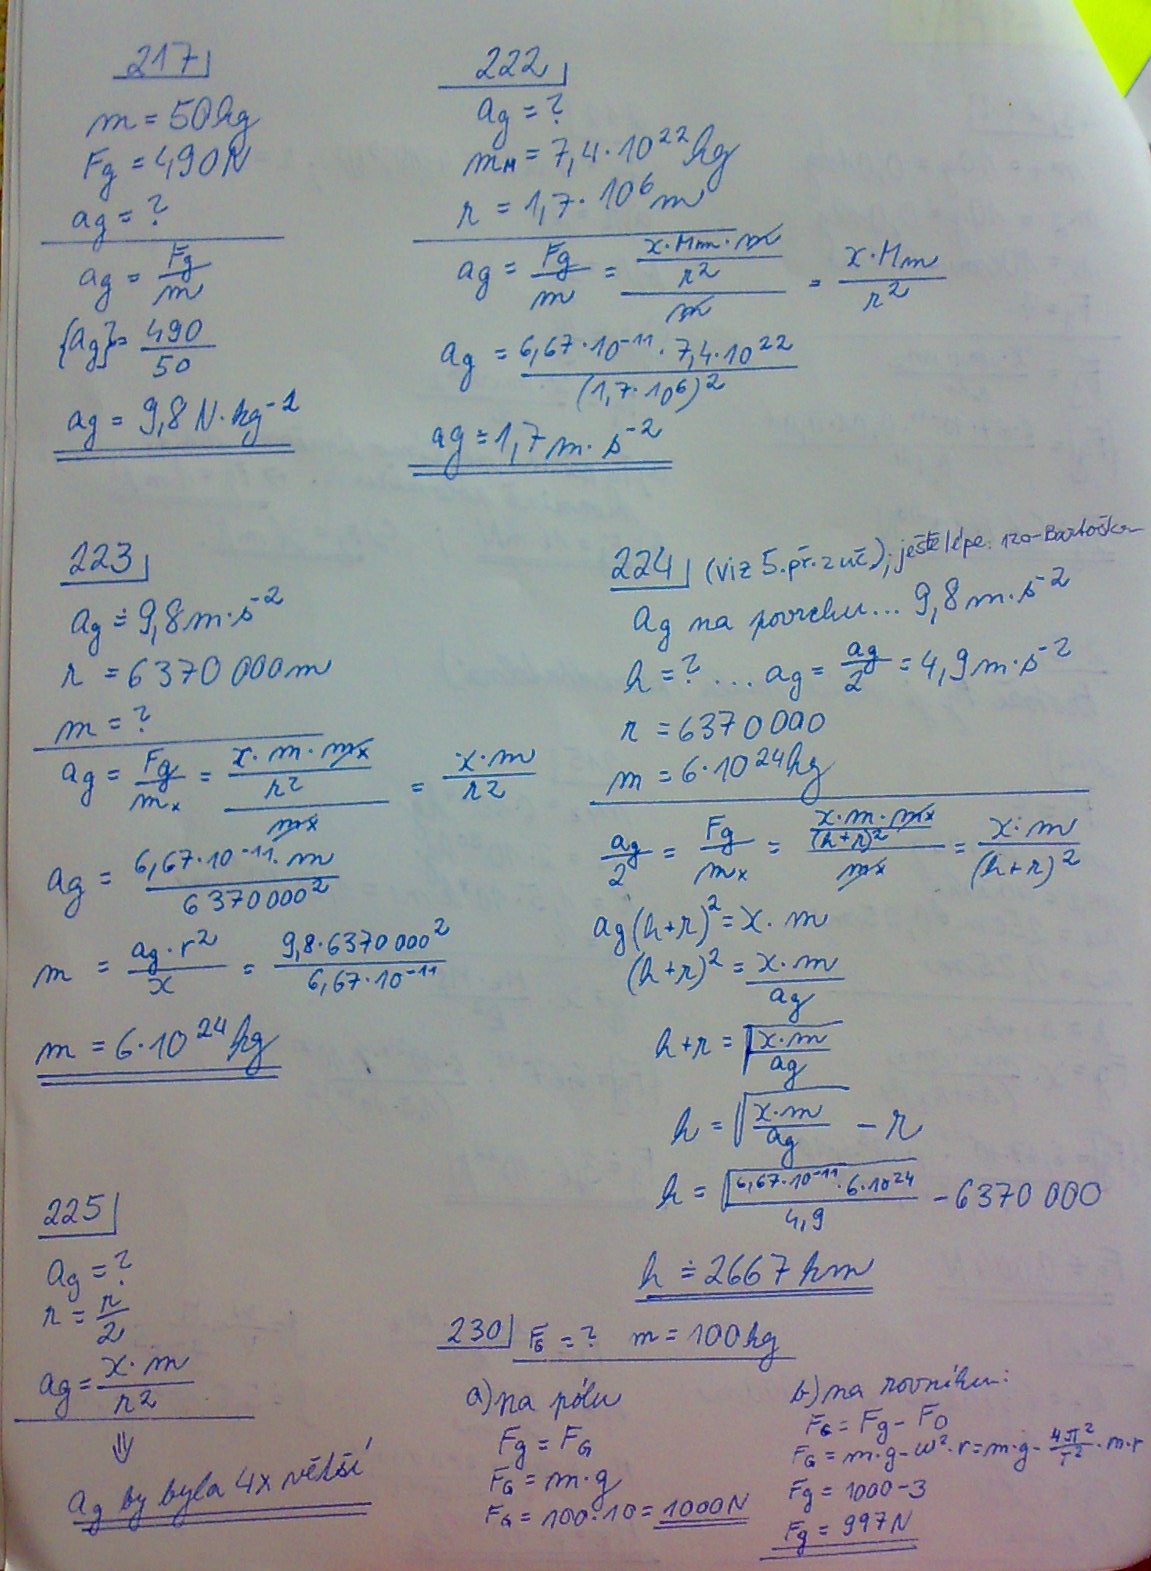 217
m = 50kg
Fg = 490N
ag = ?
ag = Fg/m
{ag} = 490/50
ag = 9,8 N·kg⁻¹
222
ag = ?
mM = 7,4·10²² kg
r = 1,7·10⁶ m
ag = Fg/m = (x·Mm·m/r²)/m = x·Mm/r²
ag = 6,67·10⁻¹¹·7,4·10²²/(1,7·10⁶)²
ag ≐ 1,7 m·s⁻²
223
ag ≐ 9,8m·s⁻²
r = 6370 000m
m = ?
ag = Fg/mx = (x·m·mx/r²)/mx = x·m/r²
ag = 6,67·10⁻¹¹·m/6370000²
m = ag·r²/x = 9,8·6370000²/6,67·10⁻¹¹
m = 6·10²⁴ kg
224 (viz 5.př. z uč); ještě lépe: 120-Bartoška
ag na povrchu... 9,8m·s⁻²
h = ? ... ag = ag/2 = 4,9m·s⁻²
r = 6370000
m = 6·10²⁴kg
ag/2 = Fg/mx = (x·m·mx/(h+r)²)/mx = x·m/(h+r)²
ag(h+r)² = x·m
(h+r)² = x·m/ag
h+r = √(x·m/ag)
h = √(x·m/ag) - r
h = √(6,67·10⁻¹¹·6·10²⁴/4,9) - 6370 000
h ≐ 2667 km
225
ag = ?
r = r/2
ag = x·m/r²
⇓
ag by byla 4x větší
230 FG = ? m = 100kg
a) na pólu
Fg = FG
FG = m·g
FG = 100·10 = 1000N
b) na rovníku:
FG = Fg - FO
FG = m·g-ω²·r = m·g - 4π²/T²·m·r
Fg = 1000-3
Fg = 997N